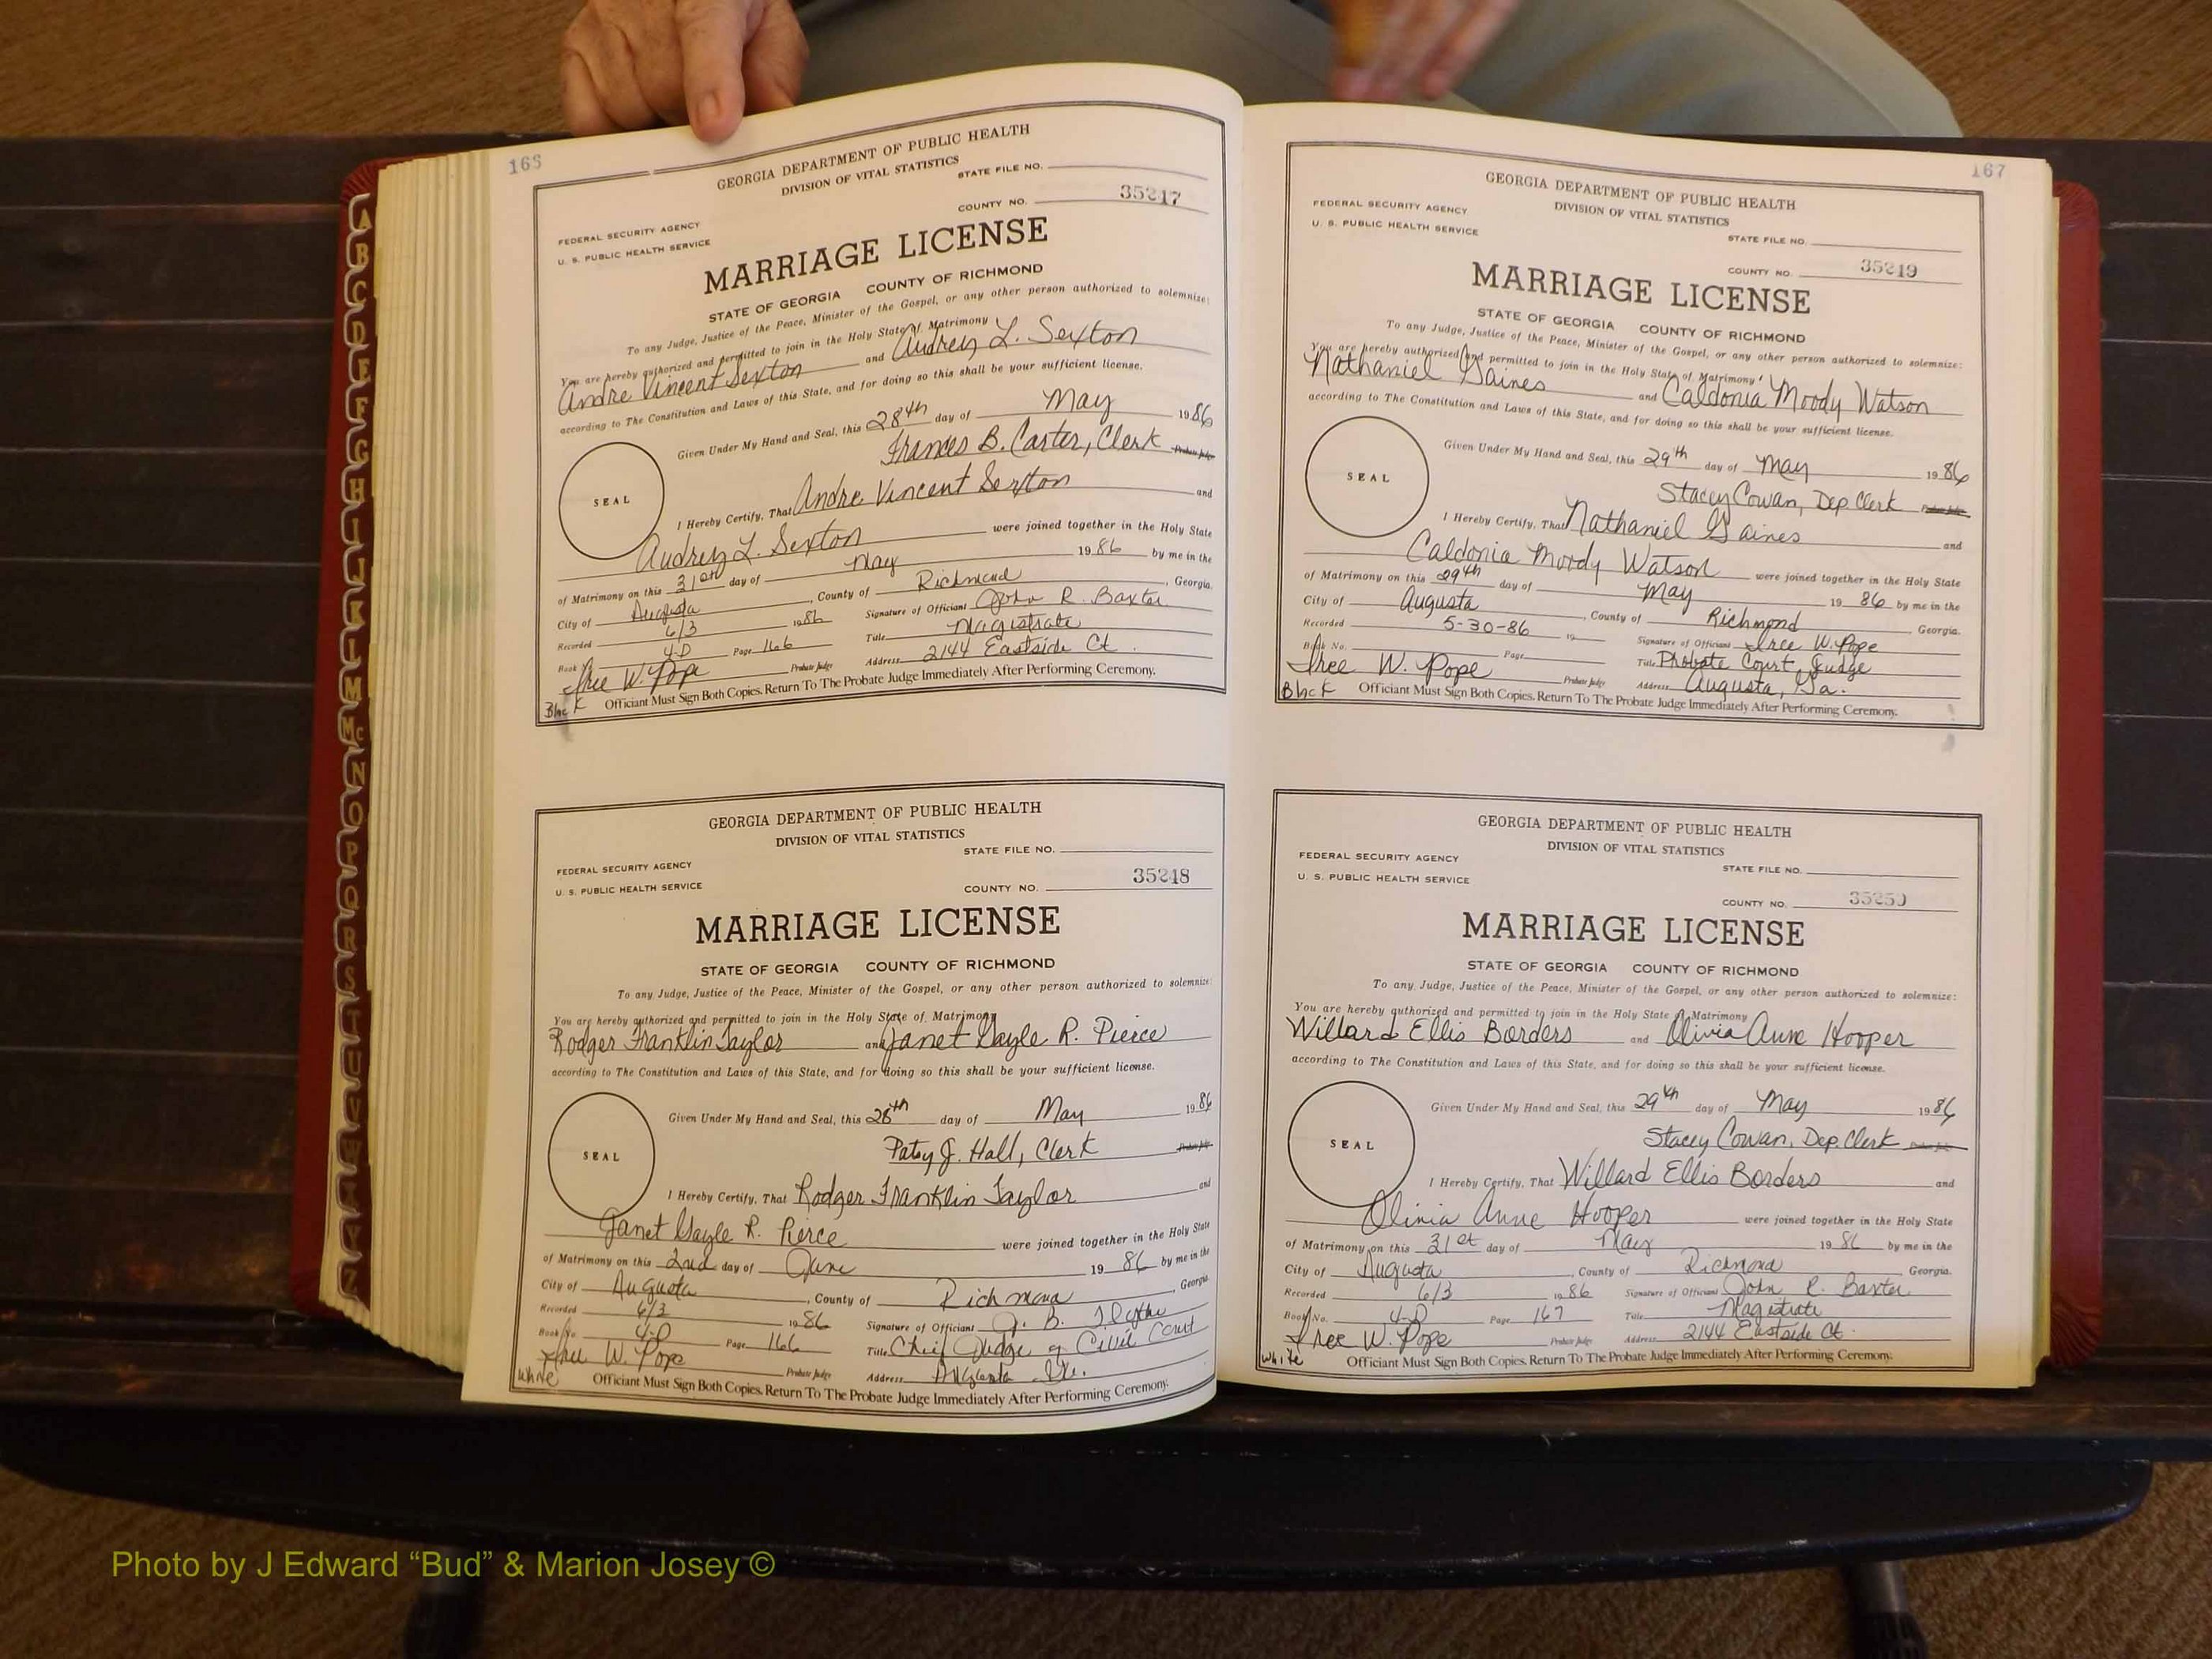 A
B
C
D
E
F
G
H
I
J
K
L
M
Mc
N
O
P
Q
R
S
T
U
V
W
X
Y
Z
166
GEORGIA DEPARTMENT OF PUBLIC HEALTH
DIVISION OF VITAL STATISTICS
STATE FILE NO.
COUNTY NO. 35247
FEDERAL SECURITY AGENCY
U. S. PUBLIC HEALTH SERVICE
MARRIAGE LICENSE
STATE OF GEORGIA COUNTY OF RICHMOND
To any Judge, Justice of the Peace, Minister of the Gospel, or any other person authorized to solemnize:
You are hereby authorized and permitted to join in the Holy State of Matrimony
Andre Vincent Sexton and Audrey L. Sexton
according to The Constitution and Laws of this State, and for doing so this shall be your sufficient license.
Given Under My Hand and Seal, this 28th day of May 1986
Frances B. Carter, Clerk Probate Judge
SEAL
I Hereby Certify, That Andre Vincent Sexton and
Audrey L. Sexton were joined together in the Holy State
of Matrimony on this 31st day of May 1986 by me in the
City of Augusta, County of Richmond, Georgia.
Recorded 6/3 1986 Signature of Officiant John R. Baxter
Book No. 4-D Page 166 Title Magistrate
Iree W. Pope Probate Judge Address 2144 Eastside Ct.
Black Officiant Must Sign Both Copies. Return To The Probate Judge Immediately After Performing Ceremony.
GEORGIA DEPARTMENT OF PUBLIC HEALTH
DIVISION OF VITAL STATISTICS
STATE FILE NO.
FEDERAL SECURITY AGENCY
U. S. PUBLIC HEALTH SERVICE
COUNTY NO. 35248
MARRIAGE LICENSE
STATE OF GEORGIA COUNTY OF RICHMOND
To any Judge, Justice of the Peace, Minister of the Gospel, or any other person authorized to solemnize:
You are hereby authorized and permitted to join in the Holy State of Matrimony
Rodger Franklin Taylor and Janet Gayle R. Pierce
according to The Constitution and Laws of this State, and for doing so this shall be your sufficient license.
Given Under My Hand and Seal, this 28th day of May 1986
Patsy J. Hall, Clerk Probate Judge
SEAL
I Hereby Certify, That Rodger Franklin Taylor and
Janet Gayle R. Pierce were joined together in the Holy State
of Matrimony on this 2nd day of June 1986 by me in the
City of Augusta, County of Richmond, Georgia.
Recorded 6/3 1986 Signature of Officiant G. B.
Book No. 4-D Page 166 Title Chief Judge of Civil Court
Iree W. Pope Probate Judge Address Augusta Ga.
White Officiant Must Sign Both Copies. Return To The Probate Judge Immediately After Performing Ceremony.
167
GEORGIA DEPARTMENT OF PUBLIC HEALTH
DIVISION OF VITAL STATISTICS
FEDERAL SECURITY AGENCY
U. S. PUBLIC HEALTH SERVICE
STATE FILE NO.
COUNTY NO. 35249
MARRIAGE LICENSE
STATE OF GEORGIA COUNTY OF RICHMOND
To any Judge, Justice of the Peace, Minister of the Gospel, or any other person authorized to solemnize:
You are hereby authorized and permitted to join in the Holy State of Matrimony
Nathaniel Gaines and Caldonia Moody Watson
according to The Constitution and Laws of this State, and for doing so this shall be your sufficient license.
Given Under My Hand and Seal, this 29th day of May 1986
Stacey Cowan, Dep Clerk Probate Judge
SEAL
I Hereby Certify, That Nathaniel Gaines and
Caldonia Moody Watson were joined together in the Holy State
of Matrimony on this 29th day of May 1986 by me in the
City of Augusta, County of Richmond, Georgia.
Recorded 5-30-86 19 Signature of Officiant Iree W. Pope
Book No. Page Title Probate Court Judge
Iree W. Pope Probate Judge Address Augusta, Ga.
Black Officiant Must Sign Both Copies. Return To The Probate Judge Immediately After Performing Ceremony.
GEORGIA DEPARTMENT OF PUBLIC HEALTH
DIVISION OF VITAL STATISTICS
FEDERAL SECURITY AGENCY
U. S. PUBLIC HEALTH SERVICE
STATE FILE NO.
COUNTY NO. 35250
MARRIAGE LICENSE
STATE OF GEORGIA COUNTY OF RICHMOND
To any Judge, Justice of the Peace, Minister of the Gospel, or any other person authorized to solemnize:
You are hereby authorized and permitted to join in the Holy State of Matrimony
Willard Ellis Borders and Olivia Anne Hooper
according to The Constitution and Laws of this State, and for doing so this shall be your sufficient license.
Given Under My Hand and Seal, this 29th day of May 1986
Stacey Cowan, Dep. Clerk Probate Judge
SEAL
I Hereby Certify, That Willard Ellis Borders and
Olivia Anne Hooper were joined together in the Holy State
of Matrimony on this 31st day of May 1986 by me in the
City of Augusta, County of Richmond Georgia.
Recorded 6/3 1986 Signature of Officiant John R. Baxter
Book No. 4-D Page 167 Title Magistrate
Iree W. Pope Probate Judge Address 2144 Eastside Ct.
White Officiant Must Sign Both Copies. Return To The Probate Judge Immediately After Performing Ceremony.
Photo by J Edward “Bud” & Marion Josey ©